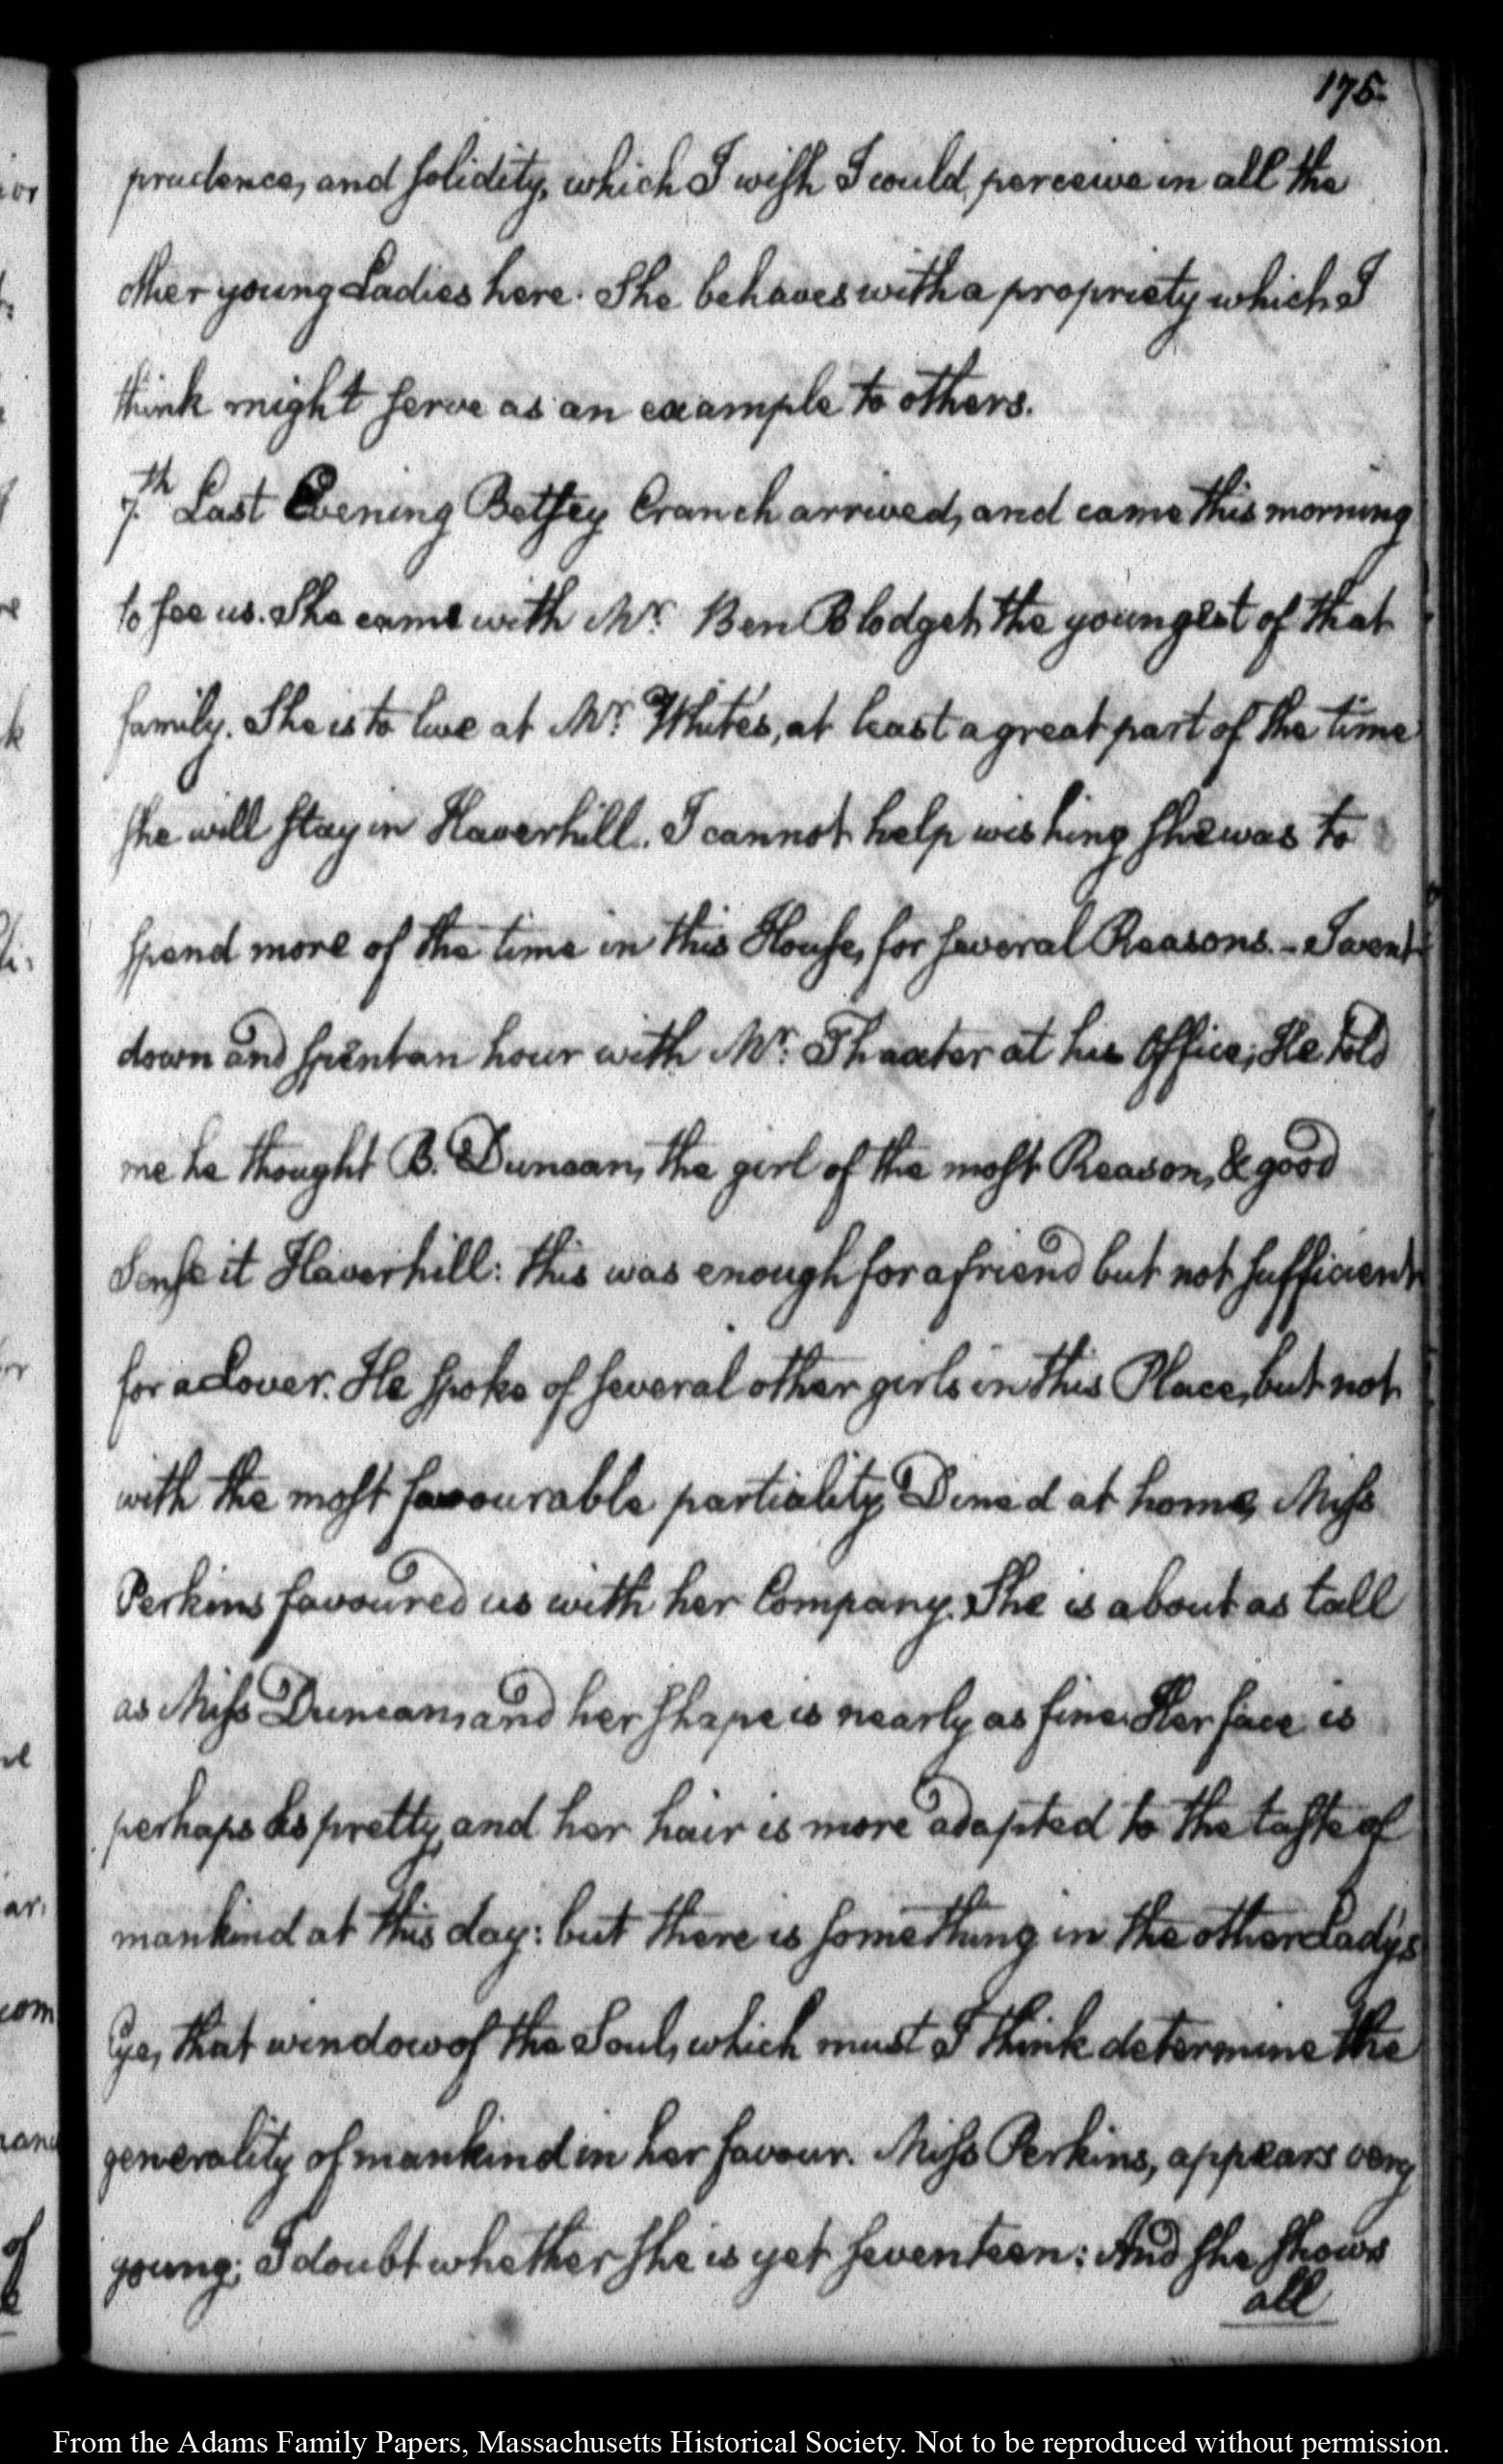 175.
prudence, and solidity, which I wish I could, perceive in all the
other young Ladies here. She behaves with a propriety which I
think might serve as an example to others.
7.th Last Evening Betsey Cranch arrived, and came this morning
to see us. She came with Mr. Ben Blodget, the youngest of that
family. She is to live at Mr. White's, at least a great part of the time
she will stay in Haverhill. I cannot help wishing she was to
spend more of the time in this House, for several Reasons. - I went
down and spent an hour with Mr. Thaxter at his Office; He told
me he thought B. Duncan, the girl of the most Reason, & good
Sense it Haverhill: this was enough for a friend but not sufficient
for a Lover. He spoke of several other girls in this Place, but not
with the most favourable partiality. Dined at home, Miss
Perkins favoured us with her Company. She is about as tall
as Miss Duncan, and her shape is nearly as fine. Her face is
perhaps as pretty, and her hair is more adapted to the taste of
mankind at this day: but there is something in the other Lady's
Eye, that window of the Soul, which must I think determine the
generality of mankind in her favour. Miss Perkins, appears very
young; I doubt whether she is yet seventeen: And she shows
all
From the Adams Family Papers, Massachusetts Historical Society. Not to be reproduced without permission.